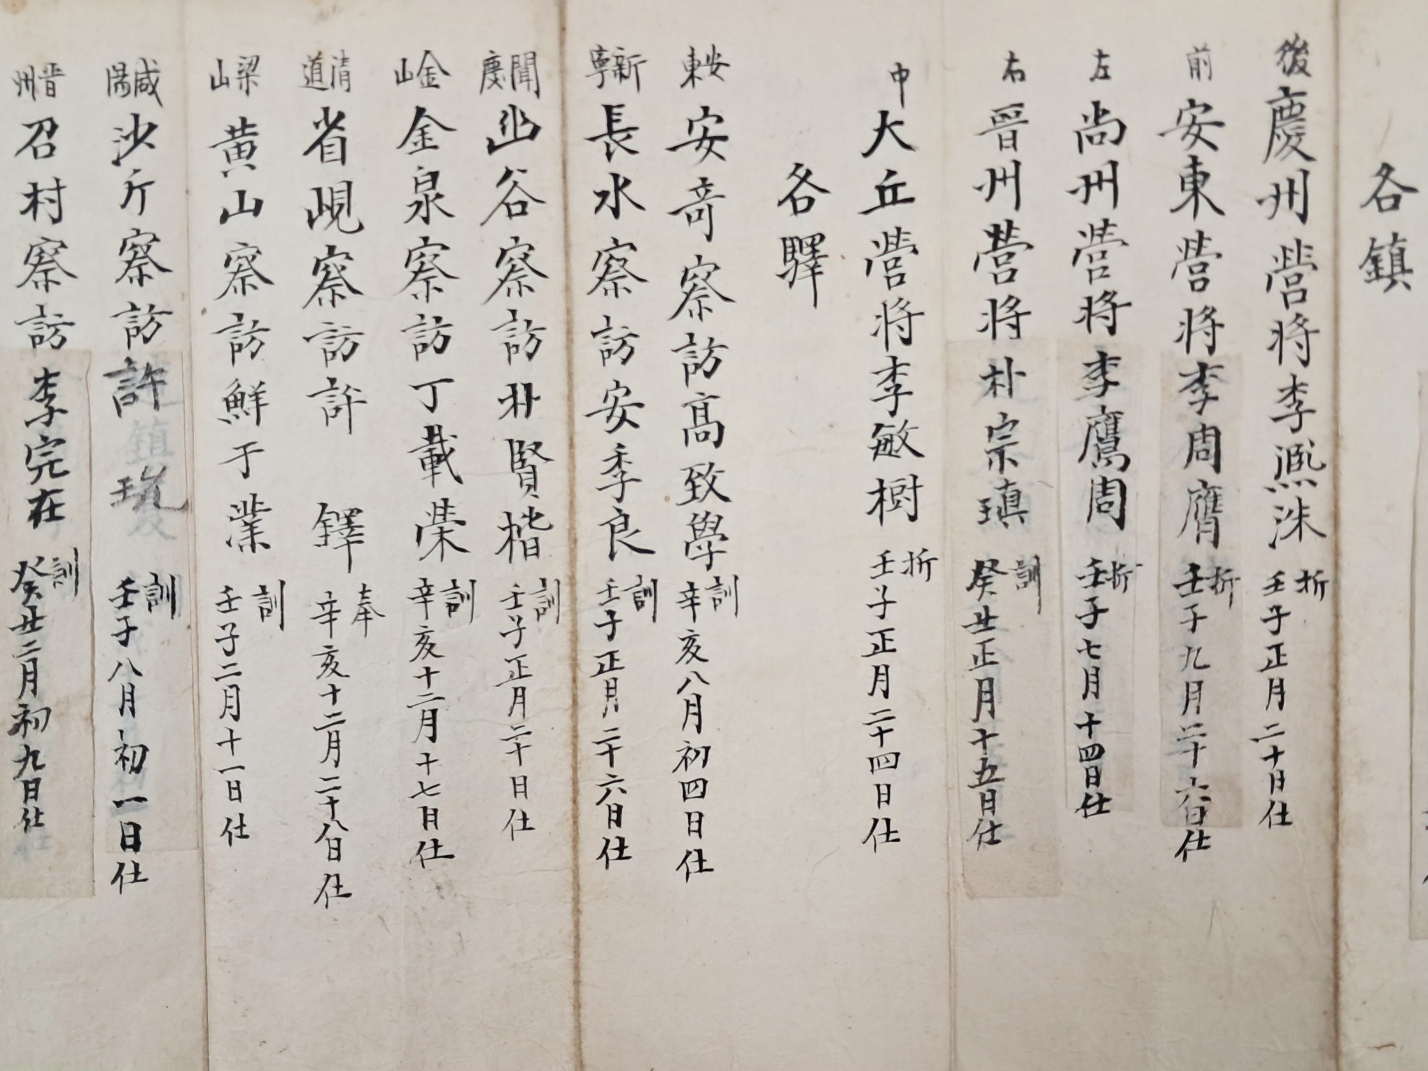 各鎮
後 慶州營將李熈洙 折 壬子正月二十日仕
前 安東營將李周膺 折 壬子九月二十六日仕
左 尙州營將李鷹周 折 壬子七月十四日仕
右 晉州營將朴宗瑱 訓 癸丑正月十五日仕
中 大丘營將李敏樹 折 壬子正月二十四日仕
各驛
安東 安奇察訪高致學 訓 辛亥八月初四日仕
新寧 長水察訪安季良 訓 壬子正月二十六日仕
聞慶 幽谷察訪朴賢楷 訓 壬子正月二十日仕
金山 金泉察訪丁載榮 訓 辛亥十二月十七日仕
清道 省峴察訪許鐸 奉 辛亥十二月二十八日仕
梁山 黃山察訪鮮于業 訓 壬子二月十一日仕
咸陽 沙斤察訪許珖 訓 壬子八月初一日仕
晋州 召村察訪李完在 訓 癸丑二月初九日仕